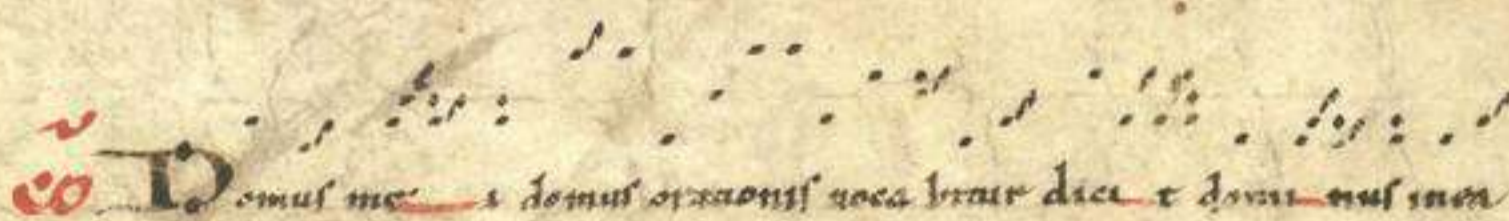 cõ Domus me a domus orationis uoca bitur dici t domi nus in ea